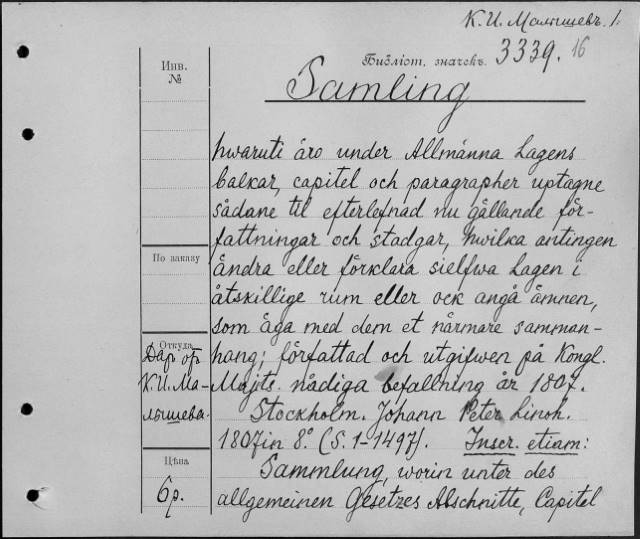 К. И. Малышевъ. 1.
Инв.
№
Библіот. значекъ. 3339. 16
Samling
hwaruti äro under Allmänna Lagens
balkar, capitel och paragrapher uptagne
sådane til efterlefnad nu gällande för-
fattningar och stadgar, hwilka antingen
По заказу
ändra eller förklara sielfwa Lagen i
åtskillige rum eller ock angå ämnen,
som äga med dem et närmare samman-
Откуда
Даръ отъ
hang; författad och utgifwen på Kongl.
К. И. Ма-
Majts. nådiga befallning år 1807.
лышева.
Stockholm. Johann Peter Lindh.
1807 in 8°. (S. 1-1497). Inser. etiam:
Цѣна
6 р.
Sammlung, worin unter des
allgemeinen Gesetzes Abschnitte, Capitel